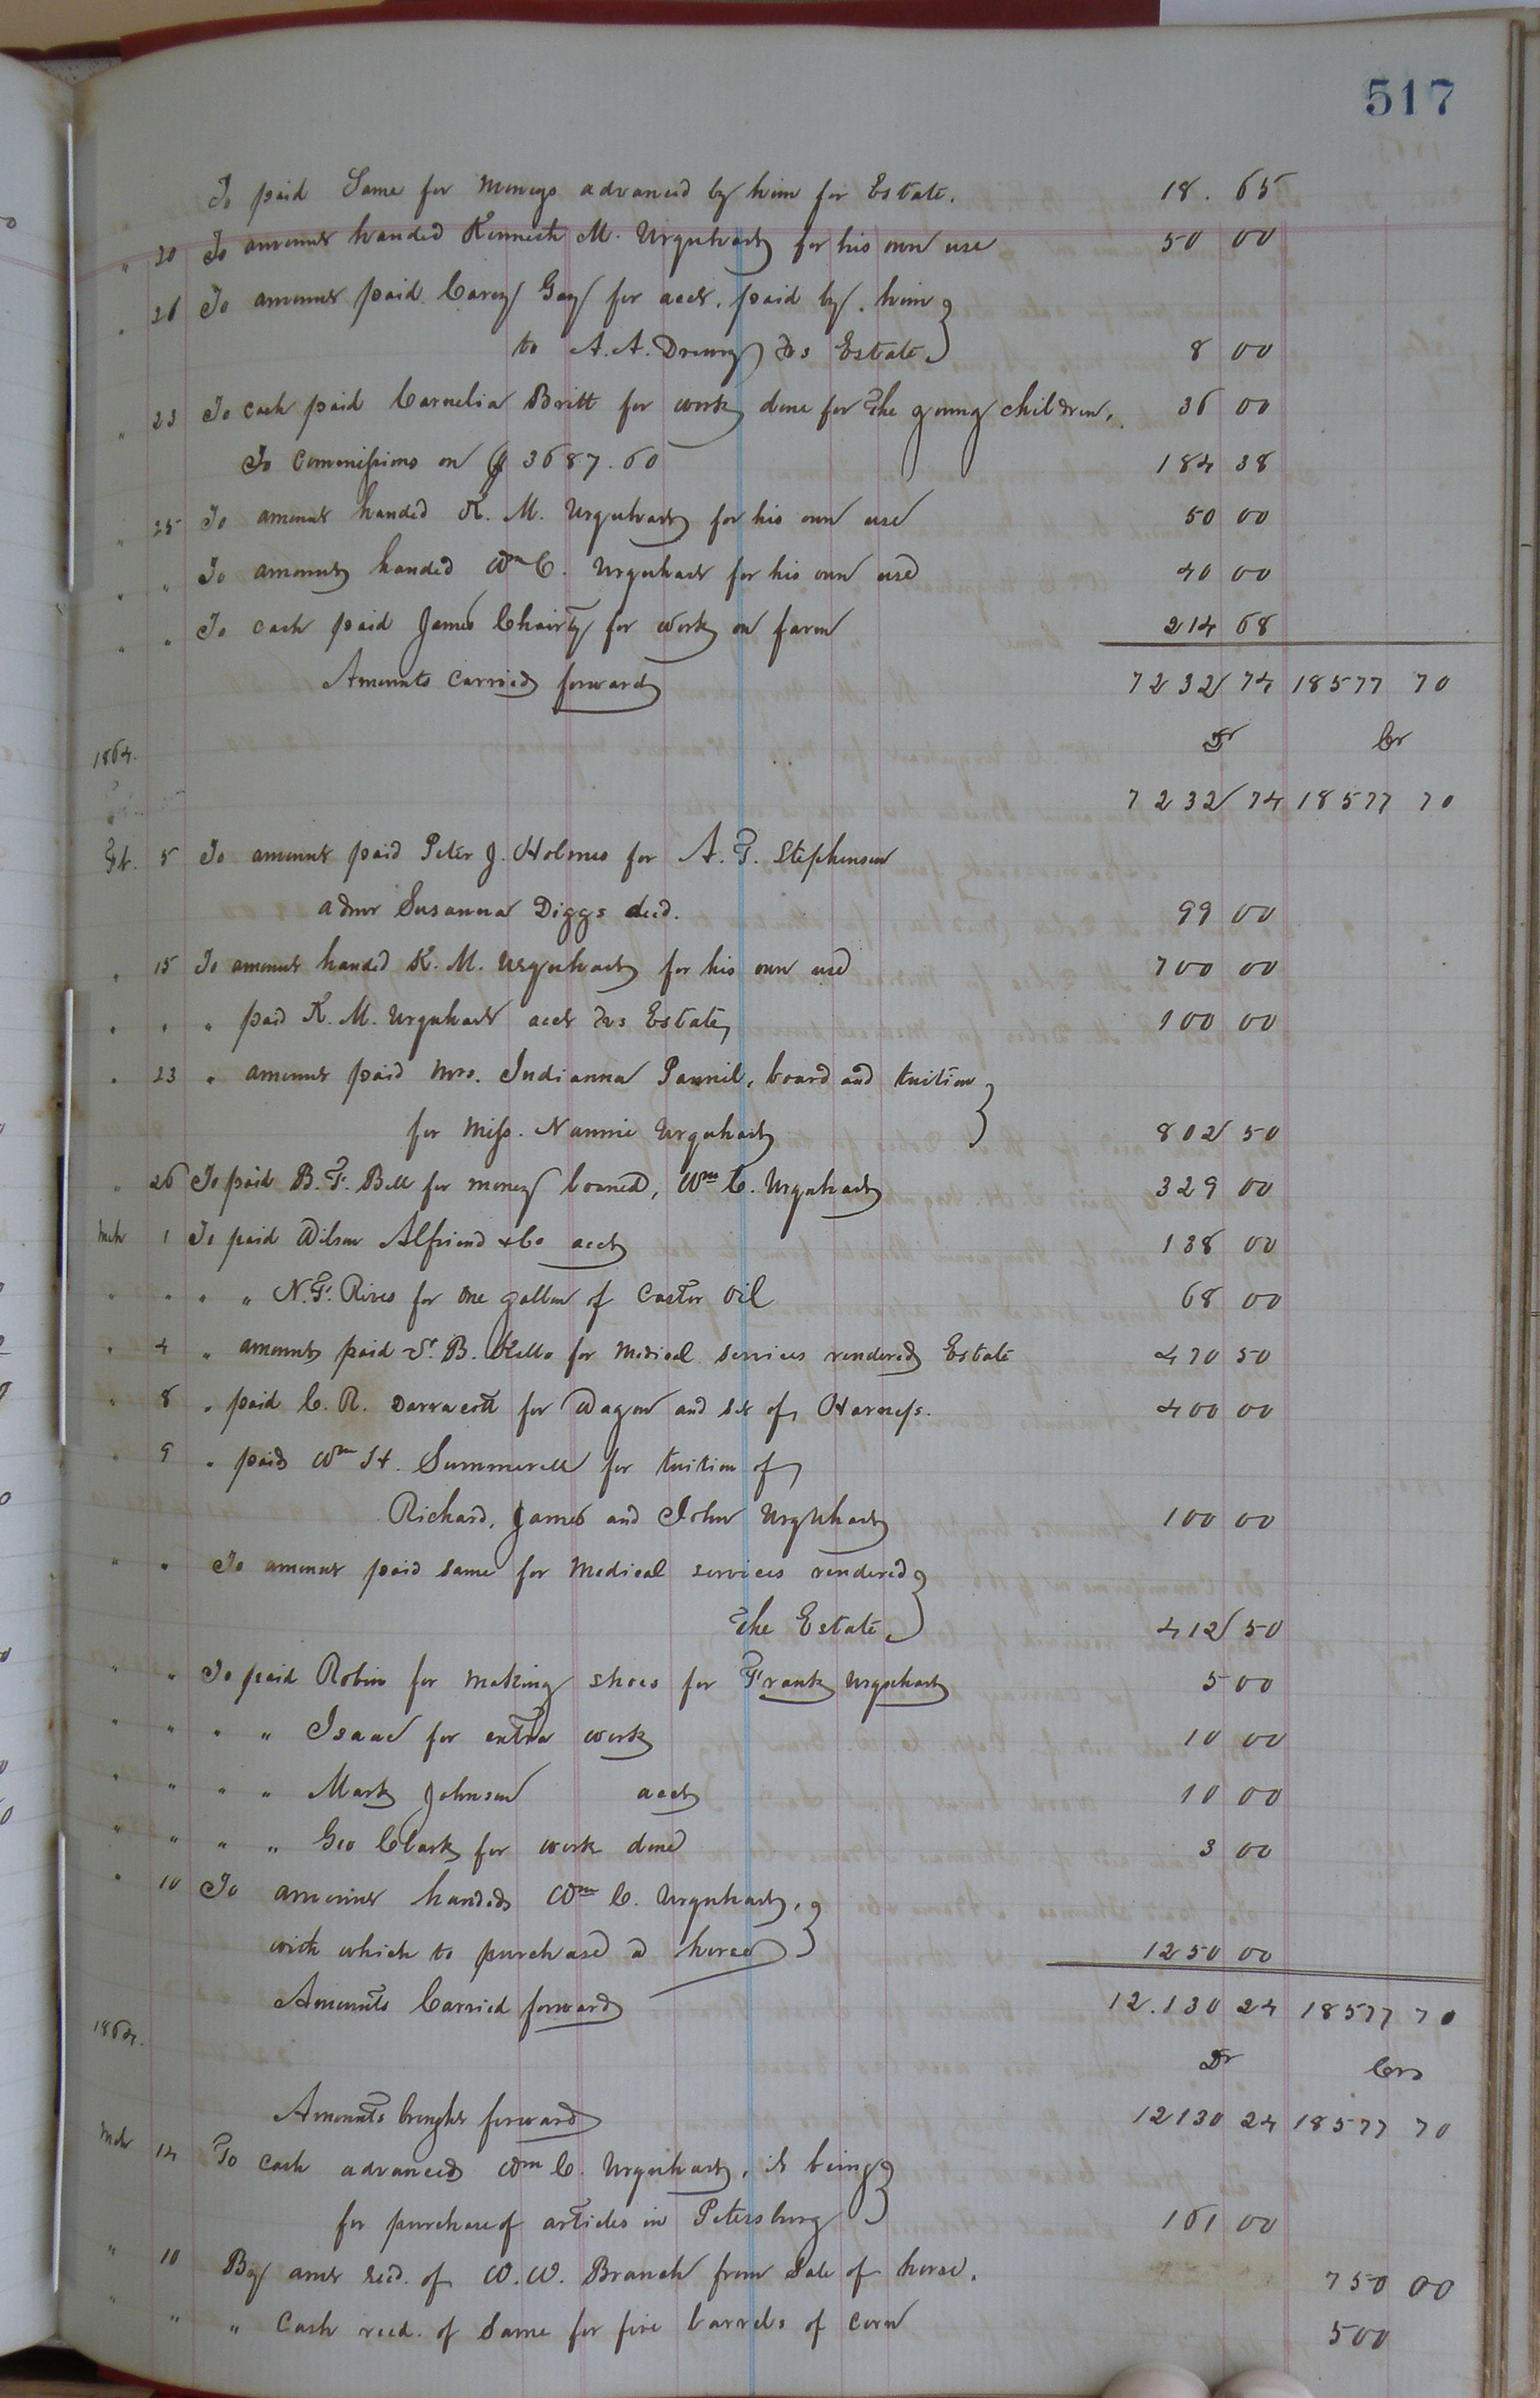 517
To paid Same for moneys advanced by him for Estate. 18. 65
" 20 To amount handed Kenneth M. Urquhart for his own use 50 00
" 26 To amount paid Carey Gay for acct. paid by him
to A. A. Drewry vs Estate 8 00
" 23 To cash paid Cornelia Britt for work done for the young children. 36 00
To Commissions on $ 3687.60 184 38
" 25 To amount handed K. M. Urquhart for his own use 50 00
" " To amount handed Wm C. Urquhart for his own use 40 00
" " To cash paid James Chairty for work on farm 214 68
Amounts carried forward 7232 74 18577 70
1864. Dr Cr
7232 74 18577 70
5 To amount paid Peter J. Holmes for A. F. Stephenson
admr Susanna Diggs decd. 99 00
" 15 To amount handed K. M. Urquhart for his own use 700 00
" " " paid K. M. Urquhart acct vs Estate 100 00
" 23 " amount paid Mrs. Indianna Pannil, board and tuition
for Miss. Nannie Urquhart 802 50
" 26 To paid B. F. Bell for money loaned, Wm C. Urquhart 329 00
Mch 1 To paid Wilson Alfriend & Co acct 138 00
" " " " N. F. Rives for one gallon of Castor Oil 68 00
" 4 " amount paid S. B. Kello for Medical services rendered Estate 470 50
" 8 " paid C. R. Darracott for Wagon and set of Harness. 400 00
" 9 " paid Wm H. Summerell for tuition of
Richard, James and John Urquhart 100 00
" " To amount paid same for Medical services rendered
the Estate 412 50
" " To paid Robin for making shoes for Frank Urquhart 5 00
" " " " Isaac for extra work 10 00
" " " " Mark Johnson acct 10 00
" " " " Geo Clark for work done 3 00
" 10 To amount handed Wm C. Urquhart,
with which to purchase a horse 1250 00
Amounts Carried forward 12.130 24 18577 70
1864. Dr Crs
Amounts brought forward 12130 24 18577 70
Mch 14 To cash advanced Wm C. Urquhart, it being
for purchase of articles in Petersburg 161 00
" 10 By amt recd. of W. W. Branch from sale of horse. 750 00
" " " Cash recd. of Same for five barrels of corn 500